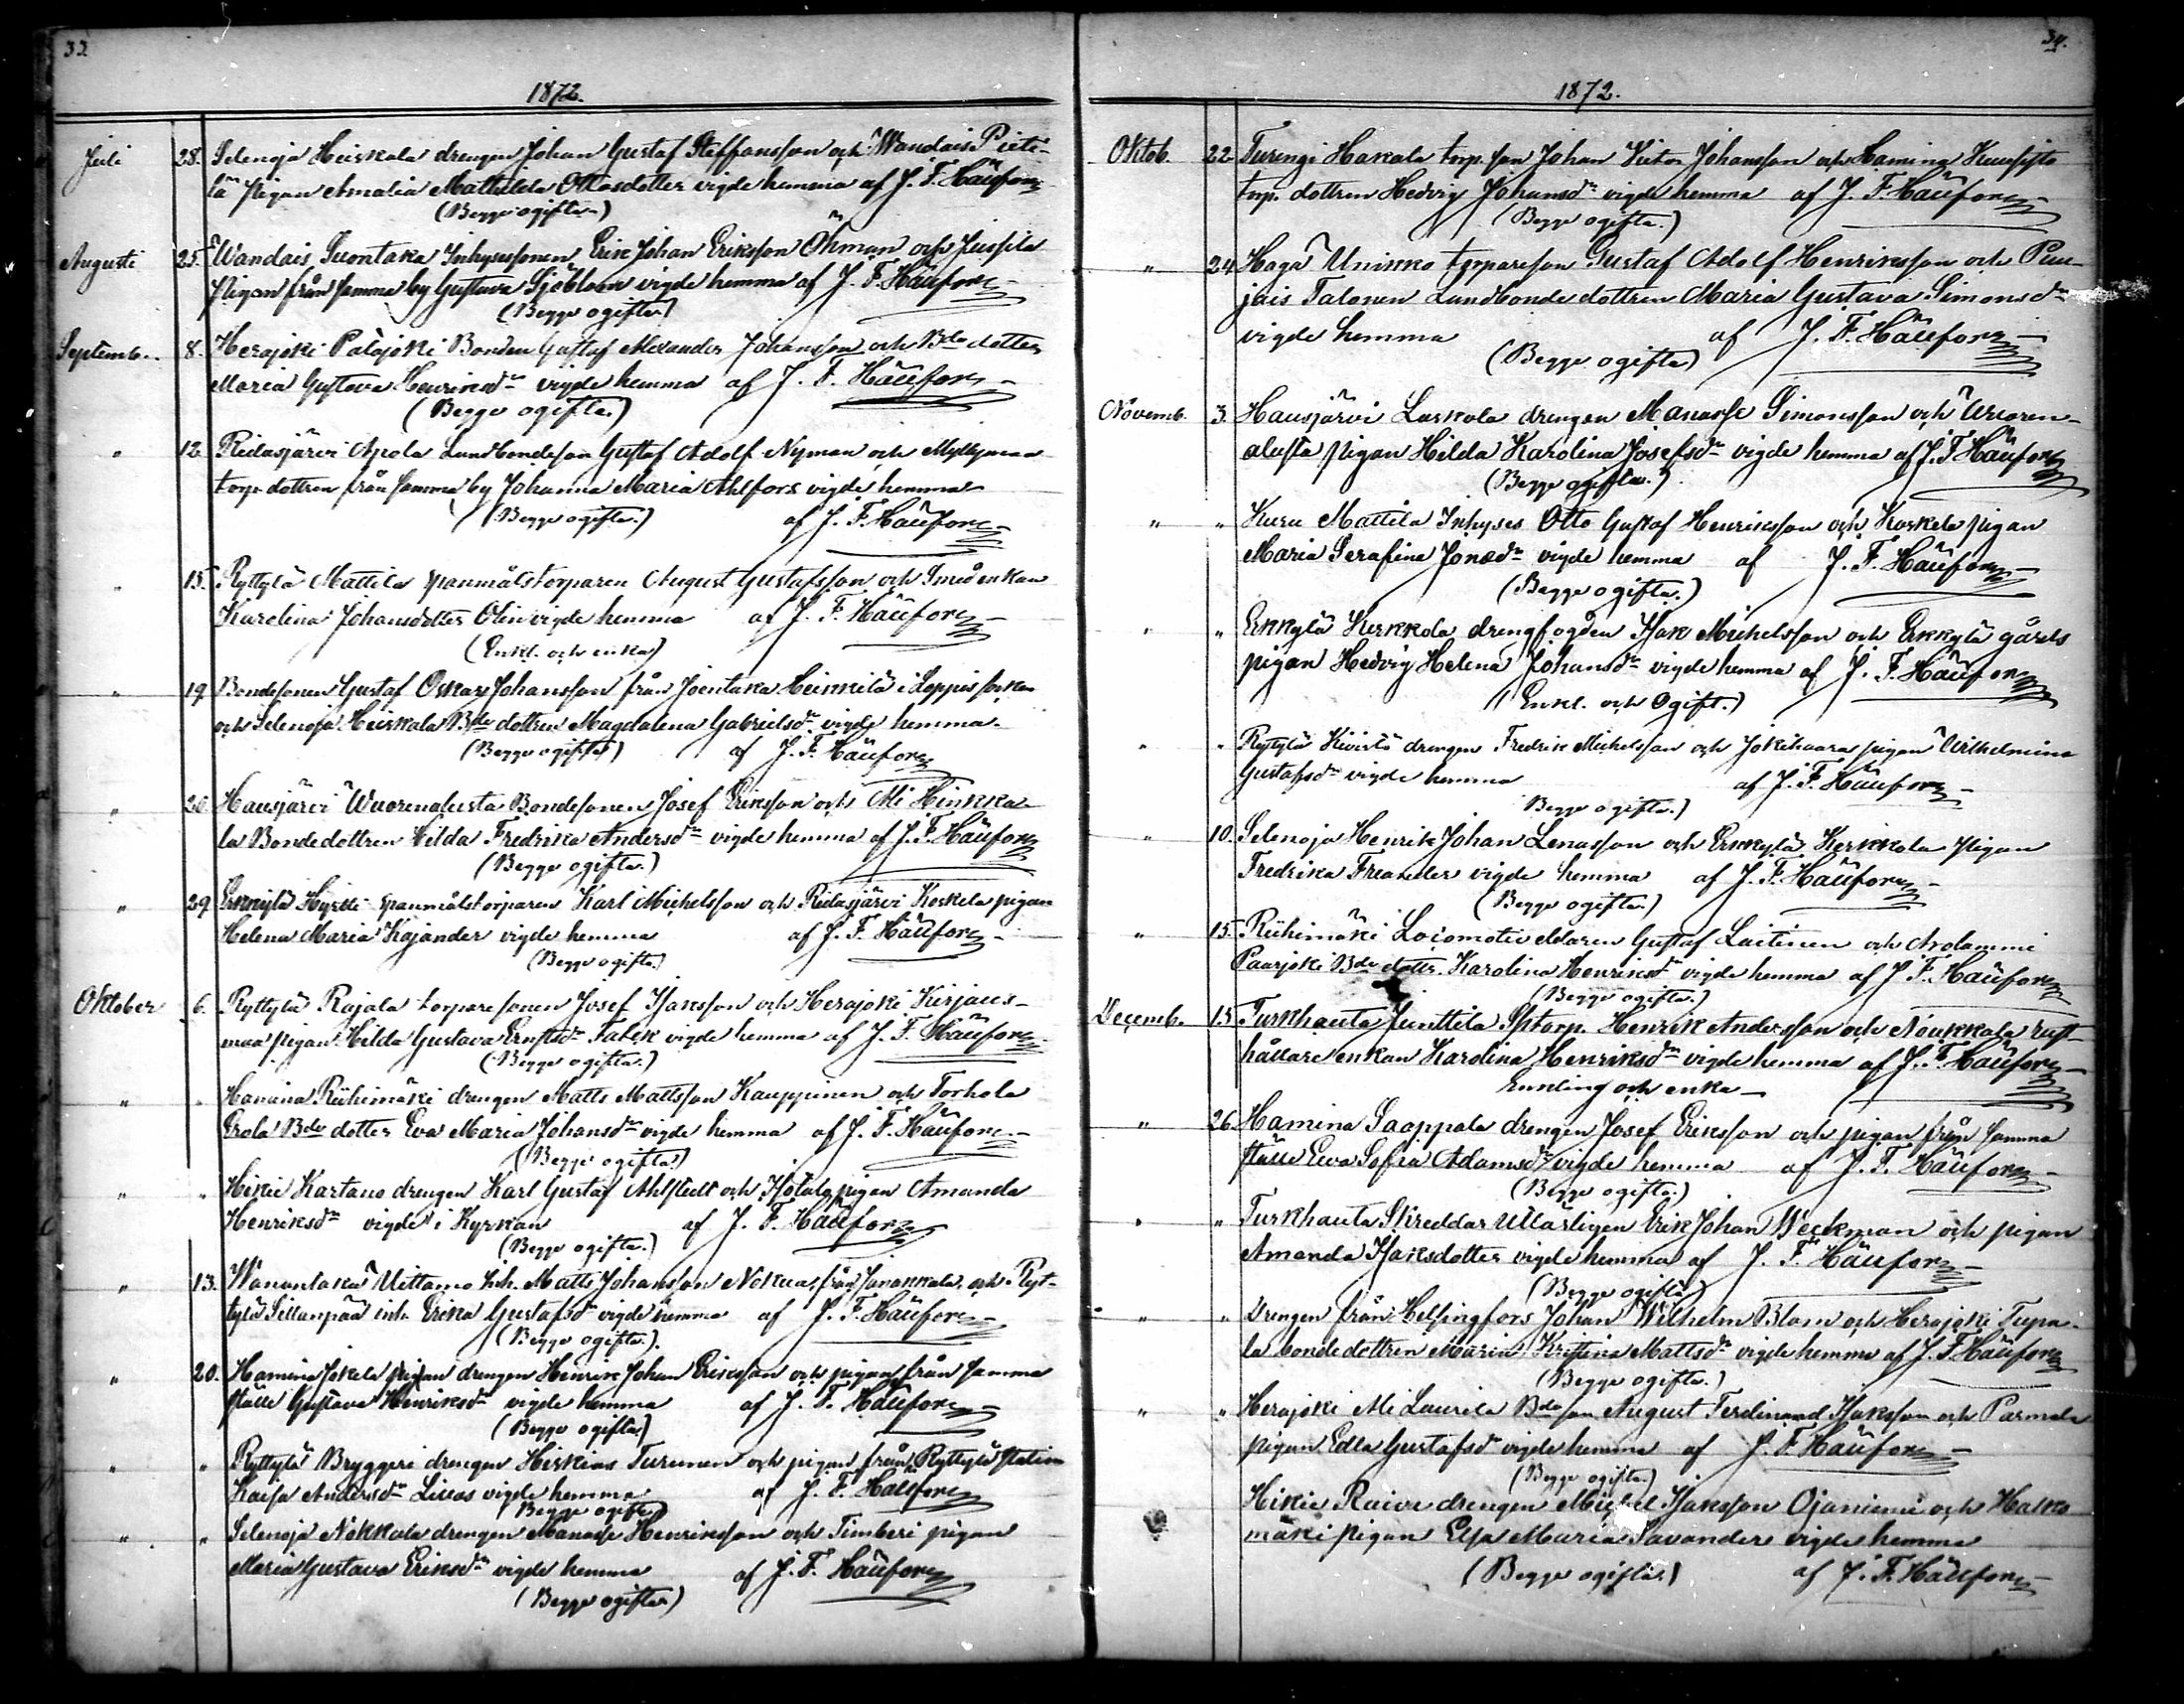 33
1872.
Juli 28. Selenoja Heiskala drengen Johan Gustaf Steffansson och Wandais Pieti-
lä pigan Amalia Mathilda Ottosdotter vigde hemma af J. F. Häufors
(Begge ogifta.)
Augusti 25. Wandais Suontaka Inhysessonen Erik Johan Eriksson Öhman och Jussila
pigan från samma by Gustava Sjöblom vigde hemma af J. F. Häufors
(Begge ogifta)
Septemb. 8. Herajoki Palojoki Bonden Gustaf Alexander Johansson och Bde dotter
Maria Gustava Henriksdr vigde hemma af J. F. Häufors
(Begge ogifta.)
" 12. Ridasjärvi Apola Landbondeson Gustaf Adolf Nyman och Myllymaa
torp. dottren från samma by Johanna Maria Ahlfors vigde hemma
(Begge ogifta.) af J. F. Häufors
" 15. Ryttylä Mattila spanmålstorparen August Gustafsson och Smedenkan
Karolina Johansdotter Olin vigde hemma af J. F. Häufors
(Enkl. och enka)
" 19. Bondesonen Gustaf Oskar Johansson från Joentaka Heinkilä i Loppis socken
och Selenoja Heiskala Bde dottren Magdalena Gabrielsdr vigde hemma
(Begge ogifta) af J. F. Häufors
" 26. Hausjärvi Wuorenalusta Bondesonen Josef Eriksson och Ali Hinkka-
la Bondedottren Hilda Fredrika Andersdr vigde hemma af J. F. Häufors
(Begge ogifta.)
" 29. Erkkylä Hyrkki spanmålstorparen Karl Michelsson och Ridasjärvi Koskela pigan
Helena Maria Kajander vigde hemma af J. F. Häufors
(Begge ogifta.)
Oktober 6. Ryttylä Rajala torparesonen Josef Isaksson och Herajoki Kirjaus-
maa pigan Hilda Gustava Ernstsdr Falck vigde hemma af J. F. Häufors
(Begge ogifta.)
" " Hamina Riihimäki drengen Matts Mattsson Kauppinen och Torhola
Erola Bde dotter Eva Maria Johansdr vigde hemma af J. F. Häufors
(Begge ogifta)
" " Hikiä Kartano drengen Karl Gustaf Ahlstedt och Isotalo pigan Amanda
Henriksdr vigde i Kyrkan af J. F. Häufors
(Begge ogifta.)
" 13. Wanantaka Uittamo Inh. Matts Johansson Nokua från Janakkala och Ryt-
tylä Sillanpää inh. Erika Gustafsdr vigde hemma af J. F. Häufors
(Begge ogifta.)
" 20. Hamina Jokela pigan drengen Henrik Johan Eriksson och pigan från samma
ställe Gustava Henriksdr vigde hemma af J. F. Häufors
(Begge ogifta)
" " Ryttylä Bryggeri drengen Hiskias Turunen och pigan från Ryttylä station
Kaisa Andersdr vigde hemma af J. F. Häufors
(Begge ogifta)
" " Selenoja Nokkala drengen Manasse Henriksson och Timberi pigan
Maria Gustava Eriksdr vigde hemma af J. F. Häufors
(Begge ogifta)
34.
1872.
Oktob. 22. Turengi Hakala torp. son Johan Victor Johansson och Hamina Kuusisto
torp. dottren Hedvig Johansdr vigde hemma af J. F. Häufors
(Begge ogifta.)
" 24. Haga Unikko torpareson Gustaf Adolf Henriksson och Puu-
jais Talonen Landbondedottren Maria Gustava Simonsdr
vigde hemma af J. F. Häufors
(Begge ogifta)
Novemb. 3. Hausjärvi Laskola drengen Manasse Simonsson och Wuoren-
alusta pigan Hilda Karolina Josefsdr vigde hemma af J. F. Häufors
(Begge ogifta.)
" " Kuru Mattila Inhyses Otto Gustaf Henriksson och Koskela pigan
Maria Serafina Jonasdr vigde hemma af J. F. Häufors
(Begge ogifta.)
" " Erkkylä Kerkkola drengfogden Isak Michelsson och Erkkylä gårds
pigan Hedvig Helena Johansdr vigde hemma af J. F. Häufors
(Enkl. och Ogift.)
" " Ryttylä Kivistö drengen Fredrik Michelsson och Jokihaara pigan Wilhelmina
Gustafsdr vigde hemma af J. F. Häufors
Begge ogifta.)
" 10. Selenoja Henrik Johan Lenasson och Erkkylä Kerkkola pigan
Fredrika Freander vigde hemma af J. F. Häufors
(Begge ogifta.)
" 15. Riihimäki Locomotiveldaren Gustaf Laitinen och Arolammi
Paarjoki Bde dottr. Karolina Henriksdr vigde hemma af J. F. Häufors
(Begge ogifta.)
Decemb. 15. Turkhauta Junttila Sptorp. Henrik Andersson och Noukkala rust-
hållare enkan Karolina Henriksdr vigde hemma af J. F. Häufors
Enkling och enka
" 26. Hamina Saappala drengen Josef Eriksson och pigan från samma
ställe Eva Sofia Adamsdr vigde hemma af J. F. Häufors
(Begge ogifta.)
" " Turkhauta Skreddar Utlärligen Erik Johan Weckman och pigan
Amanda Isaksdotter vigde hemma af J. F. Häufors
(Begge ogifta)
" " Drengen från Helsingfors Johan Wilhelm Blom och Herajoki Tupa-
la bondedottren Maria Kristina Mattsdr vigde hemma af J. F. Häufors
(Begge ogifta.)
" " Herajoki Ali Laurila Bde son August Ferdinand Isaksson och Parmala
pigan Edla Gustafsdr vigde hemma af J. F. Häufors
(Begge ogifta.)
Hikiä Raivi drengen Michel Isaksson Ojaniemi och Halko
mäki pigan Elsa Maria Savander vigde hemma
(Begge ogifta.) af J. F. Häufors